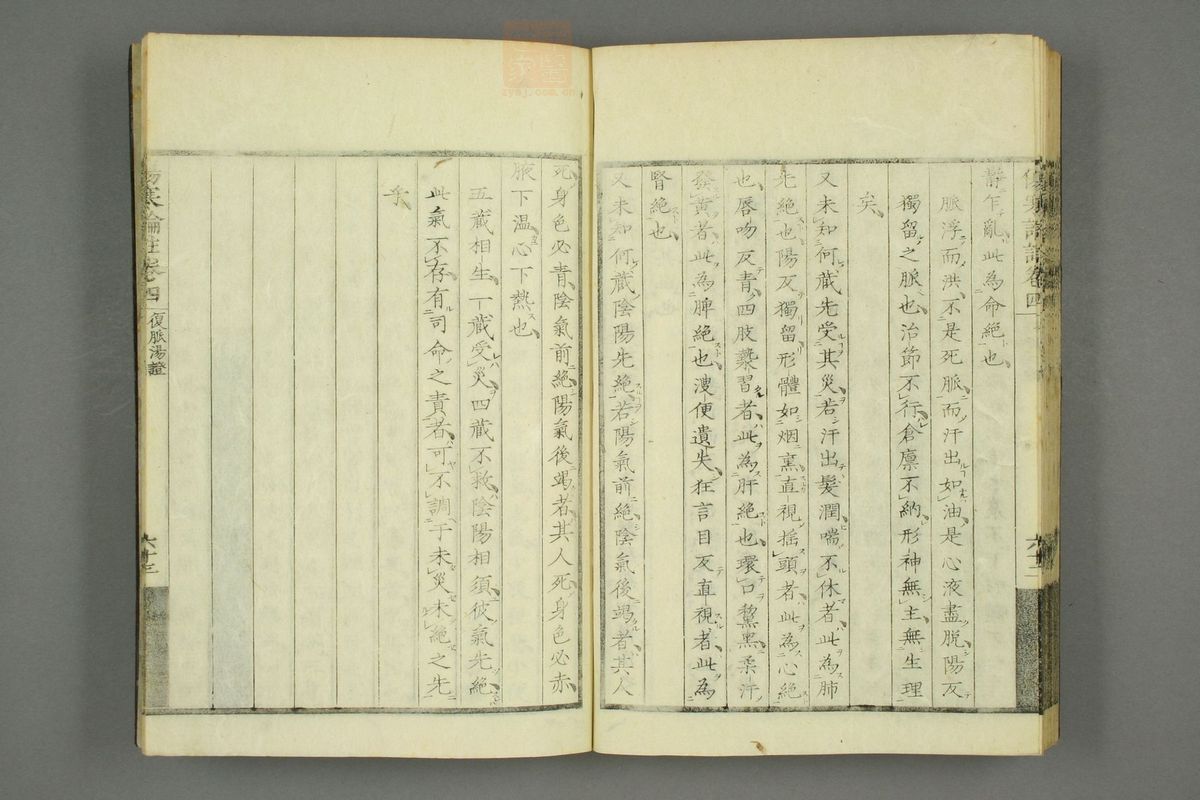 傷寒論註卷四
靜乍亂此為命絕也
脈浮而洪不是死脈而汗出如油是心液盡脫陽反
獨留之脈也治節不行倉廩不納形神無主無生理
矣
又未知何藏先受其災若汗出髮潤喘不休者此為肺
先絕也陽反獨留形體如烟熏直視搖頭者此為心絕
也唇吻反青四肢漐習者此為肝絕也環口黧黑柔汗
發黃者此為脾絕也溲便遺失狂言目反直視者此為
腎絕也
又未知何藏陰陽先絕若陽氣前絕陰氣後竭者其人
死身色必青陰氣前絕陽氣後竭者其人死身色必赤
腋下温心下熱也
五藏相生一藏受災四藏不救陰陽相須彼氣先絕
此氣不存有司命之責者可不調于未災未絕之先
乎
傷寒論註卷四
復脈湯證
六十三
zysj.com.cn